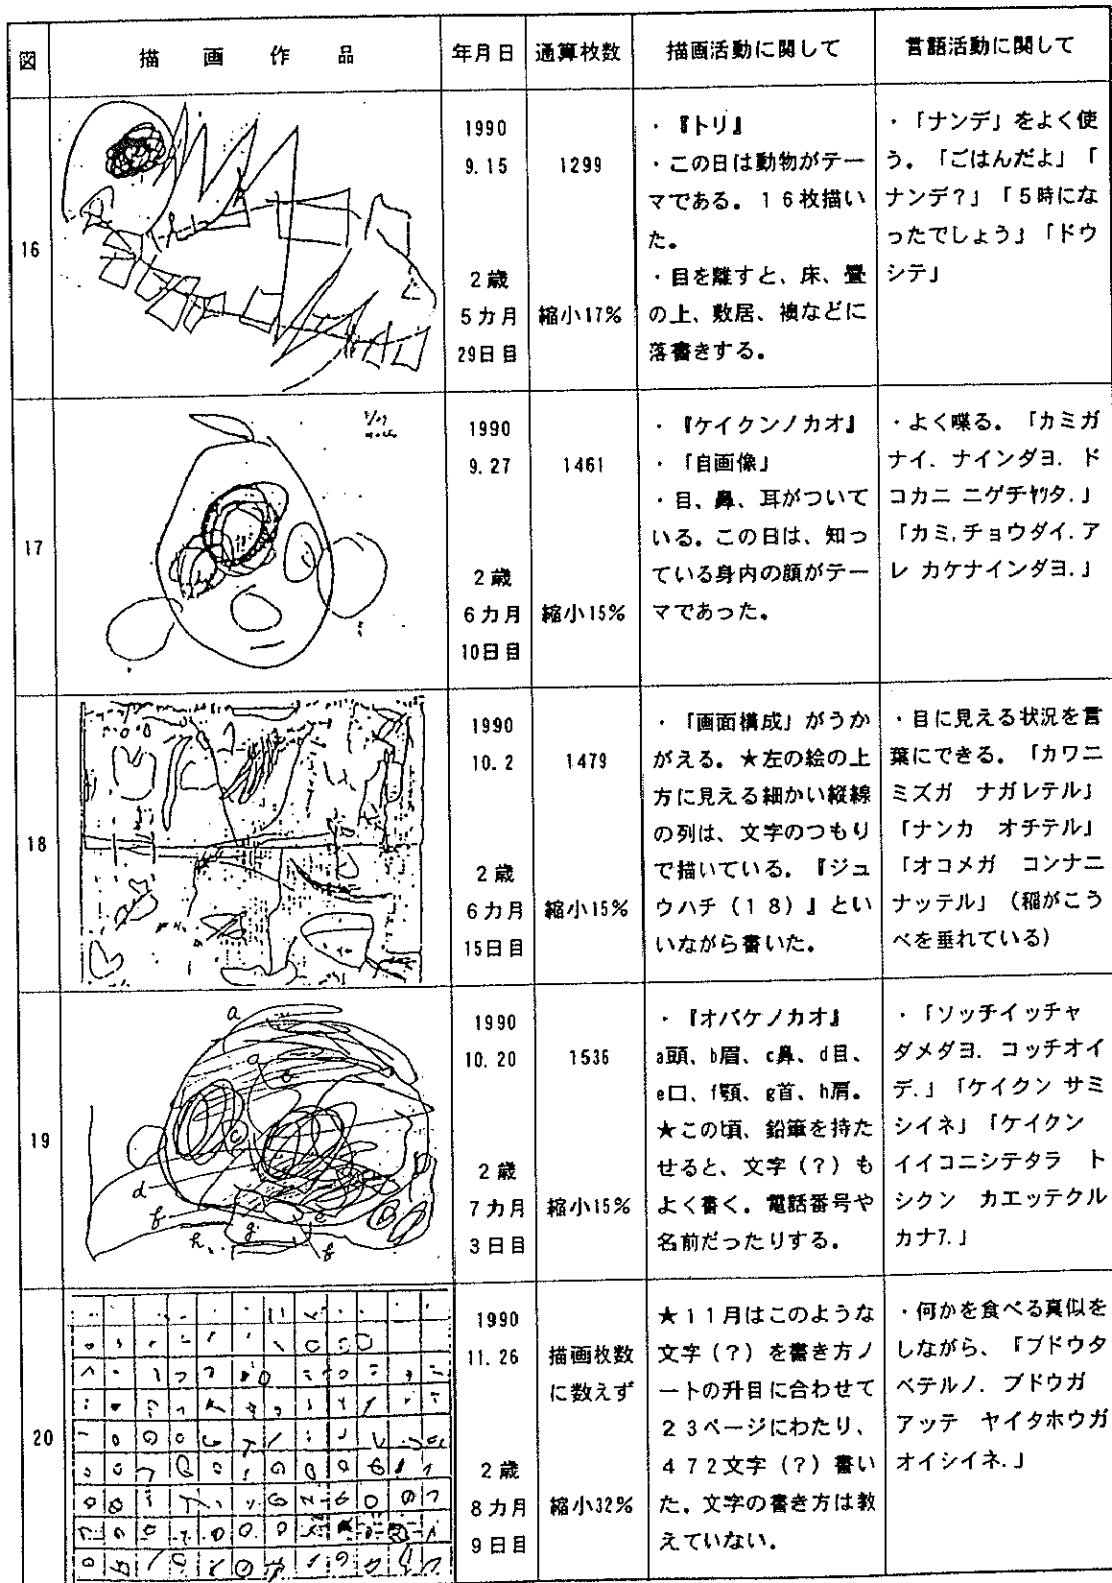 図
描画作品
年月日
通算枚数
描画活動に関して
言語活動に関して
16
1990
9.15
2歳
5カ月
29日目
1299
縮小17%
・『トリ』
・この日は動物がテー
マである。16枚描い
た。
・目を離すと、床、畳
の上、敷居、襖などに
落書きする。
・「ナンデ」をよく使
う。「ごはんだよ」「
ナンデ?」「5時にな
ったでしょう」「ドウ
シテ」
17
1990
9.27
2歳
6カ月
10日目
1461
縮小15%
・『ケイクンノカオ』
・「自画像」
・目、鼻、耳がついて
いる。この日は、知っ
ている身内の顔がテー
マであった。
・よく喋る。「カミガ
ナイ. ナインダヨ. ド
コカニ ニゲチャッタ.」
「カミ,チョウダイ.ア
レ カケナインダヨ.」
18
1990
10.2
2歳
6カ月
15日目
1479
縮小15%
・「画面構成」がうか
がえる。★左の絵の上
方に見える細かい縦線
の列は、文字のつもり
で描いている。『ジュ
ウハチ(18)』とい
いながら書いた。
・目に見える状況を言
葉にできる。「カワニ
ミズガ ナガレテル」
「ナンカ オチテル」
「オコメガ コンナニ
ナッテル」(稲がこう
べを垂れている)
19
a
c
d
f
e
g
h
b
1990
10.20
2歳
7カ月
3日目
1536
縮小15%
・『オバケノカオ』
a頭、b眉、c鼻、d目、
e口、f顎、g首、h肩。
★この頃、鉛筆を持た
せると、文字(?)も
よく書く。電話番号や
名前だったりする。
・「ソッチイッチャ
ダメダヨ. コッチオイ
デ.」「ケイクン サミ
シイネ」「ケイクン
イイコニシテタラ ト
シクン カエッテクル
カナ?.」
20
1990
11.26
2歳
8カ月
9日目
描画枚数
に数えず
縮小32%
★11月はこのような
文字(?)を書き方ノ
ートの升目に合わせて
23ページにわたり、
472文字(?)書い
た。文字の書き方は教
えていない。
・何かを食べる真似を
しながら、「ブドウタ
ベテルノ. ブドウガ
アッテ ヤイタホウガ
オイシイネ.」